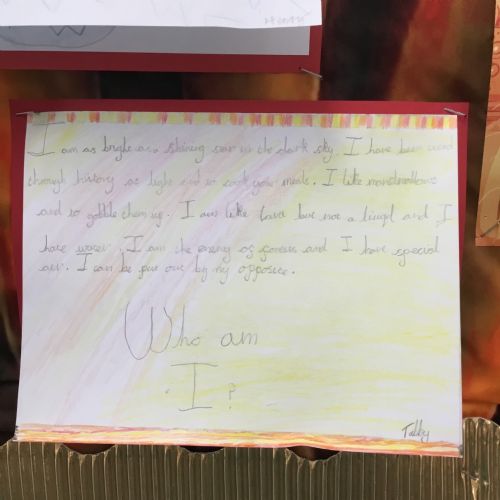 I am as bright as a shining star in the dark sky. I have been used
through history as light and to cook your meals. I like marshmallows
and to gobble them up. I am like lava but not a liquid and I
hate water. I am the enemy of forests and I have special
air. I can be put out by my opposite.
Who am
I?
Tabby